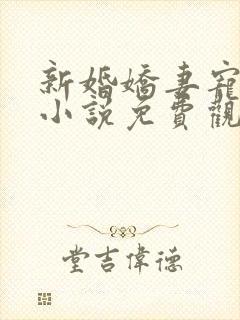 新婚嬌妻寵
小說免費觀
堂吉偉德